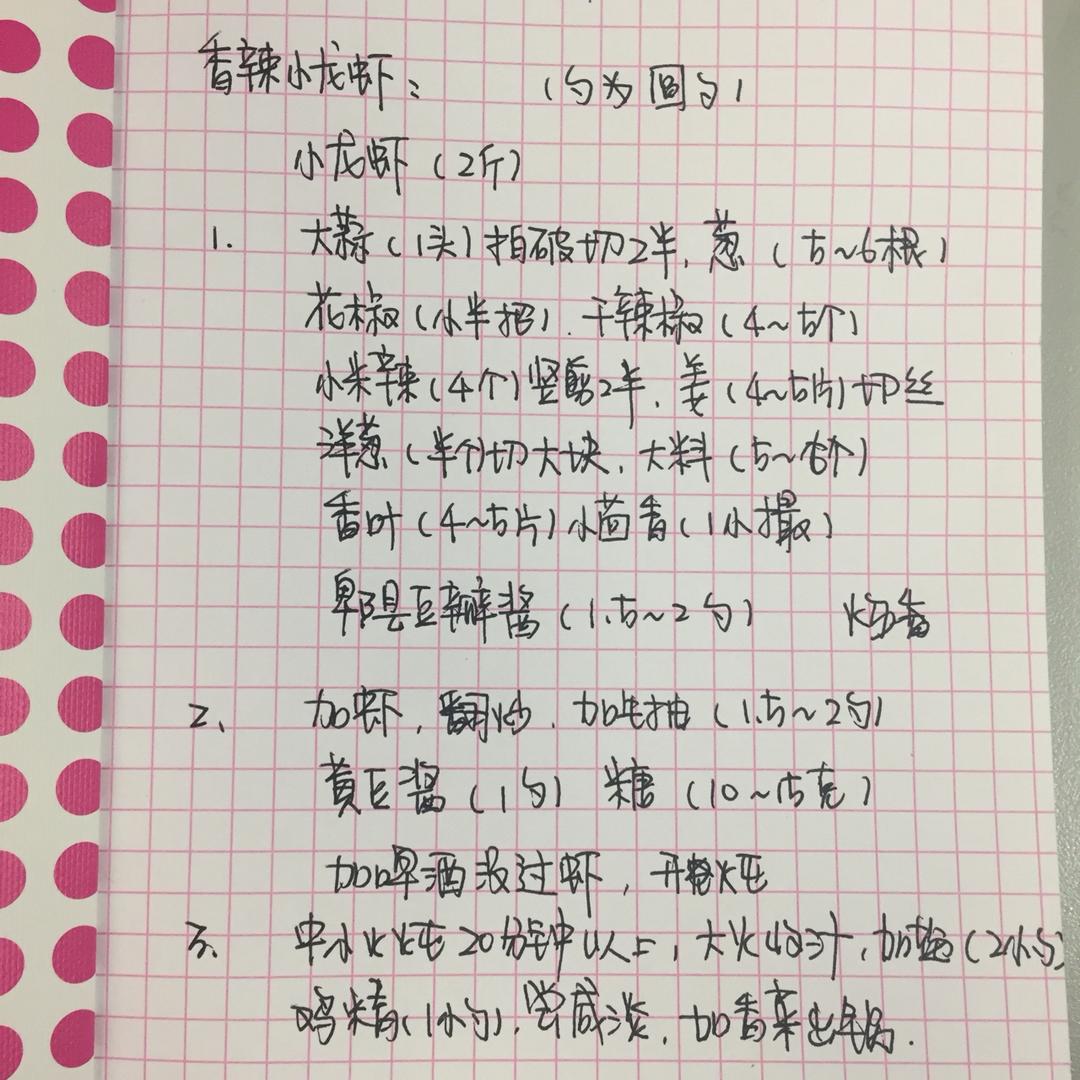 香辣小龙虾: (勺为圆勺)
小龙虾(2斤)
1. 大蒜(1头)拍破切2半,葱(5~6根)
花椒(小半把).干辣椒(4~5个)
小米辣(4个)竖剪2半.姜(4~5片)切丝
洋葱(半个)切大块.大料(5~6个)
香叶(4~5片)小茴香(1小撮)
郫县豆瓣酱(1.5~2勺) 炒香
2、 加虾,翻炒.加生抽(1.5~2勺)
黄豆酱(1勺) 糖(10~15克)
加啤酒没过虾,开炖
3. 中小火炖20分钟以上,大火收汁,加盐(2小勺)
鸡精(1小勺).尝咸淡.加香菜出锅.